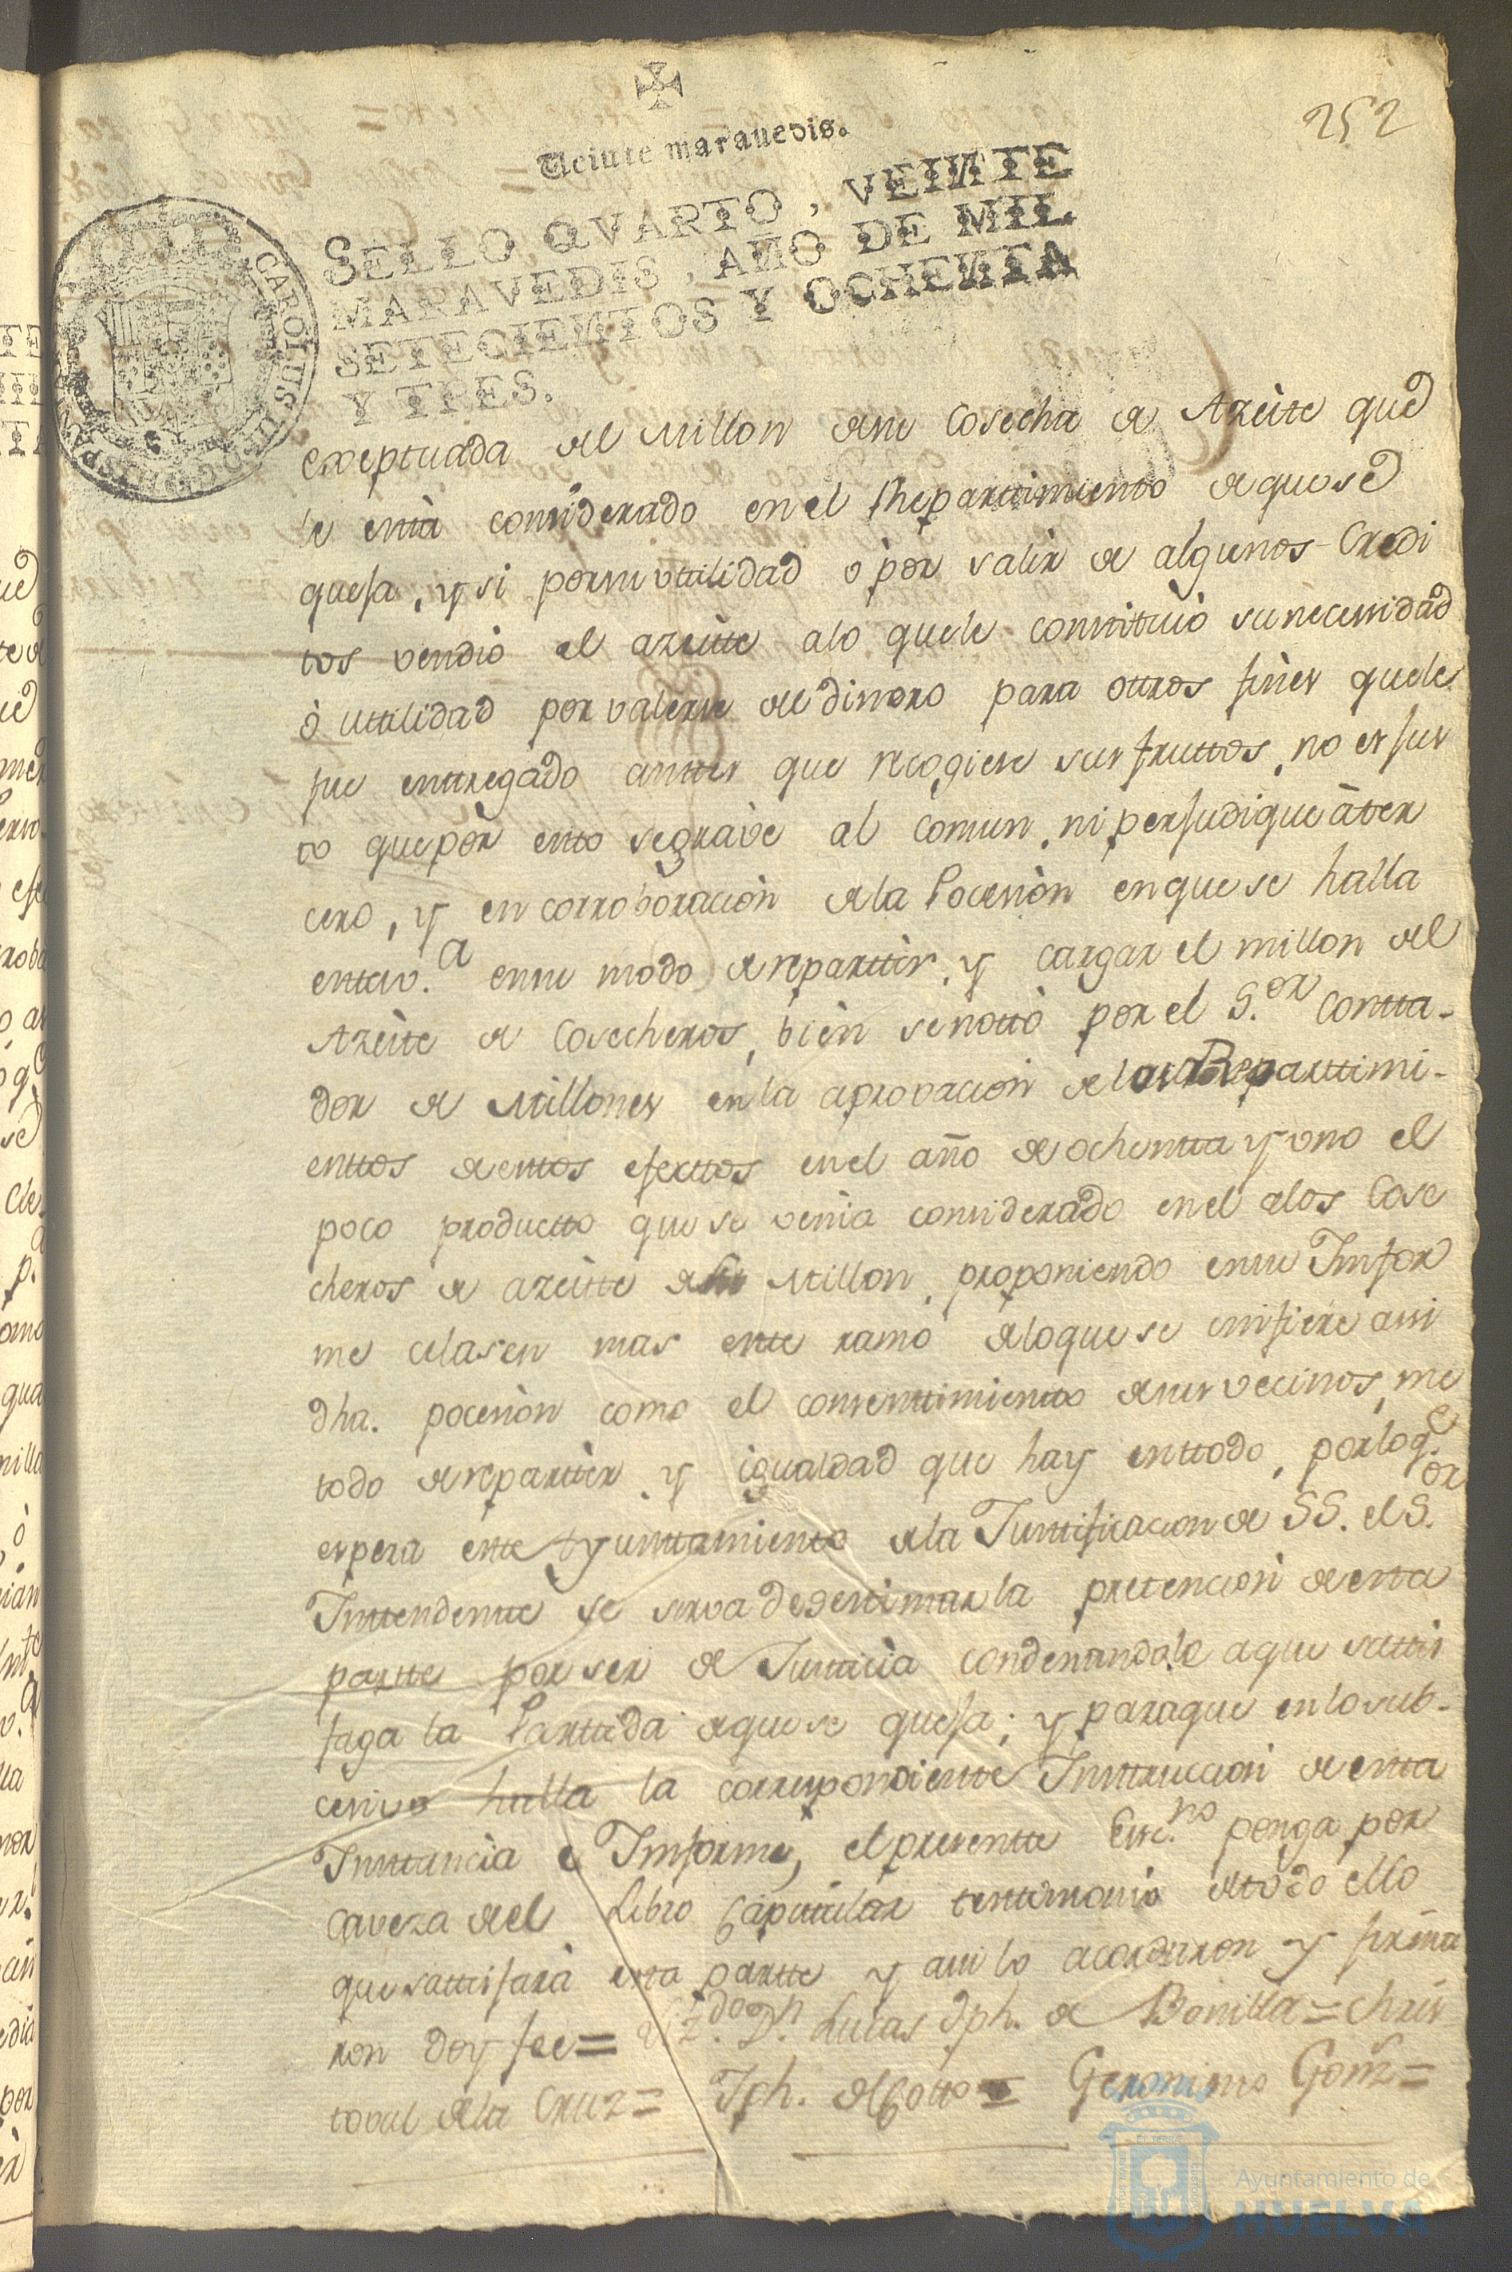 252
Veinte maravedis.
SELLO QVARTO, VEINTE
MARAVEDIS, AÑO DE MIL
SETECIENTOS Y OCHENTA
Y TRES.
CAROLUS III D G HISP
exeptuada del Millon desu Cosecha de Azeite qued
le està considerado en el Repartimiento de quesed
quesa, y si porsu utilidad ò por salir de algunos Credi
tos vendiò el azeitte alo quele constituiò su necessidad
ò uttilidad por valerse de dinero para ottros fines quele
fue enttregado anttes que recogiese sus fruttos, no es jus
to que por esto se grave al comun, ni perjudique à ter
cero, y en corroboraciòn dela Poceciòn enque se halla
esta v.a ensu modo de reparttir, y cargar el millon del
Azeitte de Cosecheros, bièn se notò por el S.or Contta-
dor de Millones en la aprovacion de los Reparttimi-
enttos de estos efecttos en el año de ochentta y uno el
poco productto que se venia considerado en el alos Cose
cheros de azeitte de su Millon, proponiendo ensu Infor
me celasen mas este ramo de loque se infiere assi
dha. poceciòn como el consenttimientto de sus vecinos, me
todo de reparttir, y igualdad que hay en ttodo, por loq.e
espera este Ayunttamiento dela Justtificacion de SS. el S.or
Inttendentte se sirva desestimar la pretencion de esta
partte por ser de Justticia condenandole a que sattis
faga la Parttida de que se quesa; y paraque en lo sub-
cesivo halla la correspondientte Insttruccion de esta
Insttancia è Informe, el presentte Essc.no ponga por
caveza del Libro Capitular testimonio de todo ello
que sattisfarà esta partte y assi lo acordaron y firma
ron doy fee= Liz.do D.n Lucas Jph. de Bonilla= Chris
toval dela Cruz= Jph. del Cotto= Geronimo Gomz=
Ayuntamiento de
HUELVA